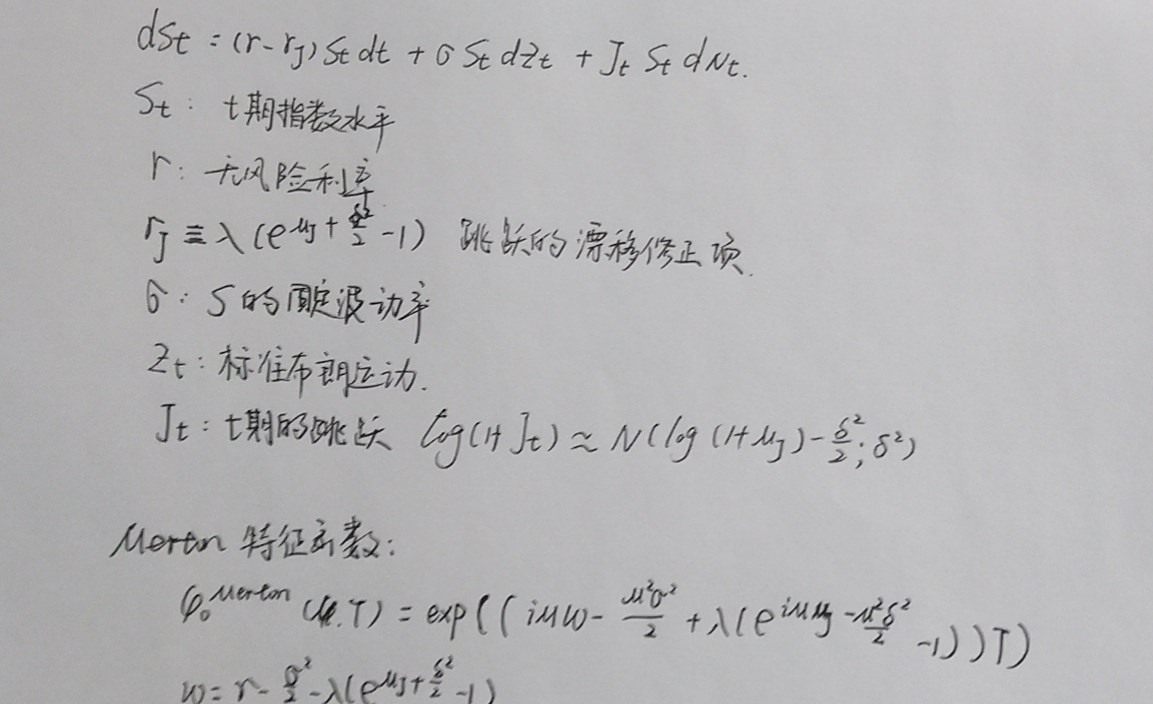 dSt = (r-rJ) St dt + σ St dZt + Jt St dNt.
St: t期指数水平
r: 无风险利率
rJ ≡ λ(e^{μJ + δ²/2} -1) 跳跃的漂移修正项.
σ: S的固定波动率
Zt: 标准布朗运动.
Jt: t期的跳跃 log(1+Jt) ≈ N(log(1+μJ) - δ²/2; δ²)
Merton 特征函数:
φ0^{Merton}(u.T) = exp((iuw - u²σ²/2 + λ(e^{iuμJ - u²δ²/2} -1))T)
w = r - σ²/2 - λ(e^{μJ + δ²/2} -1)